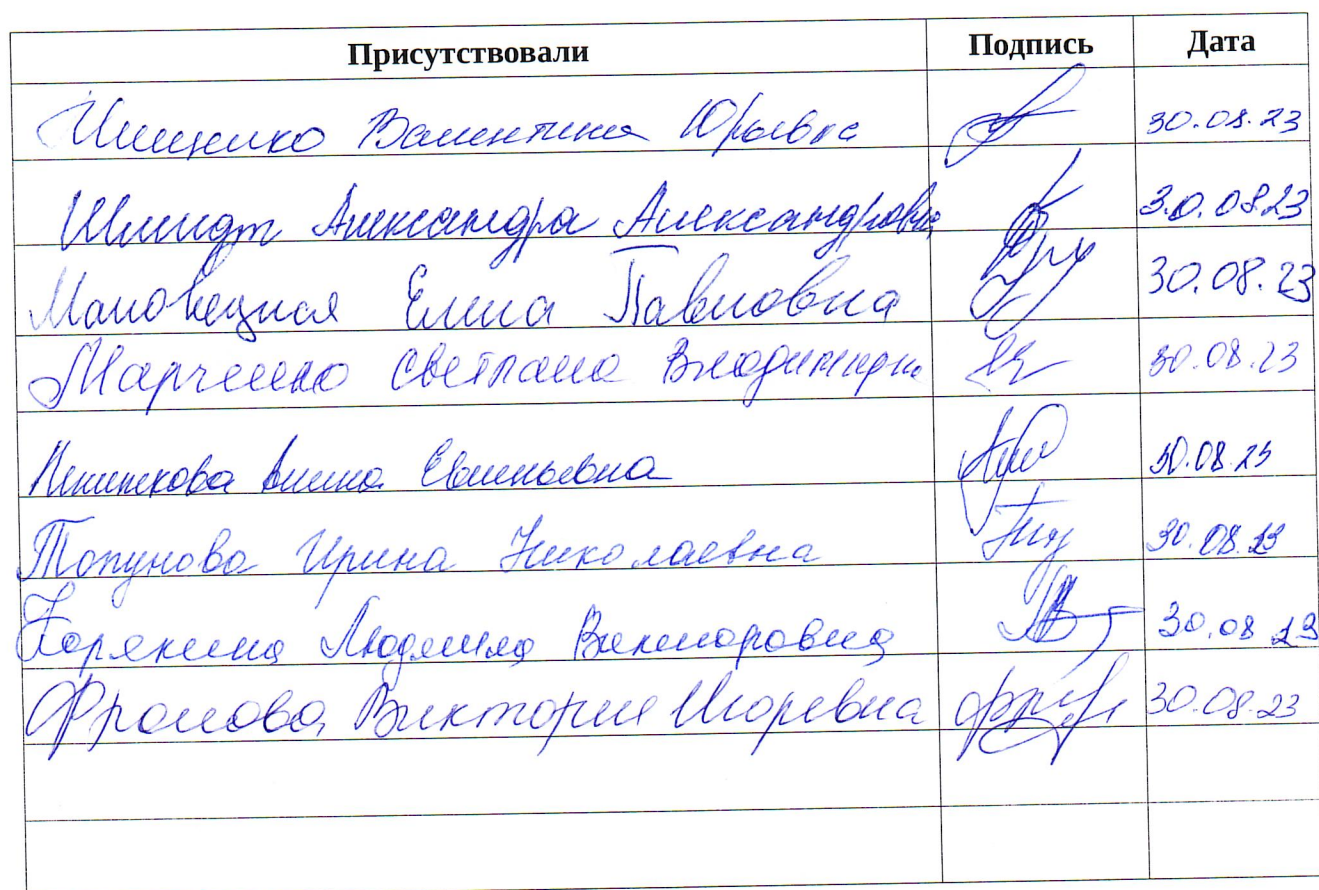 Присутствовали Подпись Дата
Ищенко Валентина Юрьевна 30.08.23
Шмидт Александра Александровна 30.08.23
Маловецкая Елена Павловна 30.08.23
Марченко Светлана Владимировна 30.08.23
Евгеньевна 30.08.23
Топунова Ирина Николаевна 30.08.23
Корякина Людмила Викторовна 30.08.23
Фролова Виктория Игоревна 30.08.23